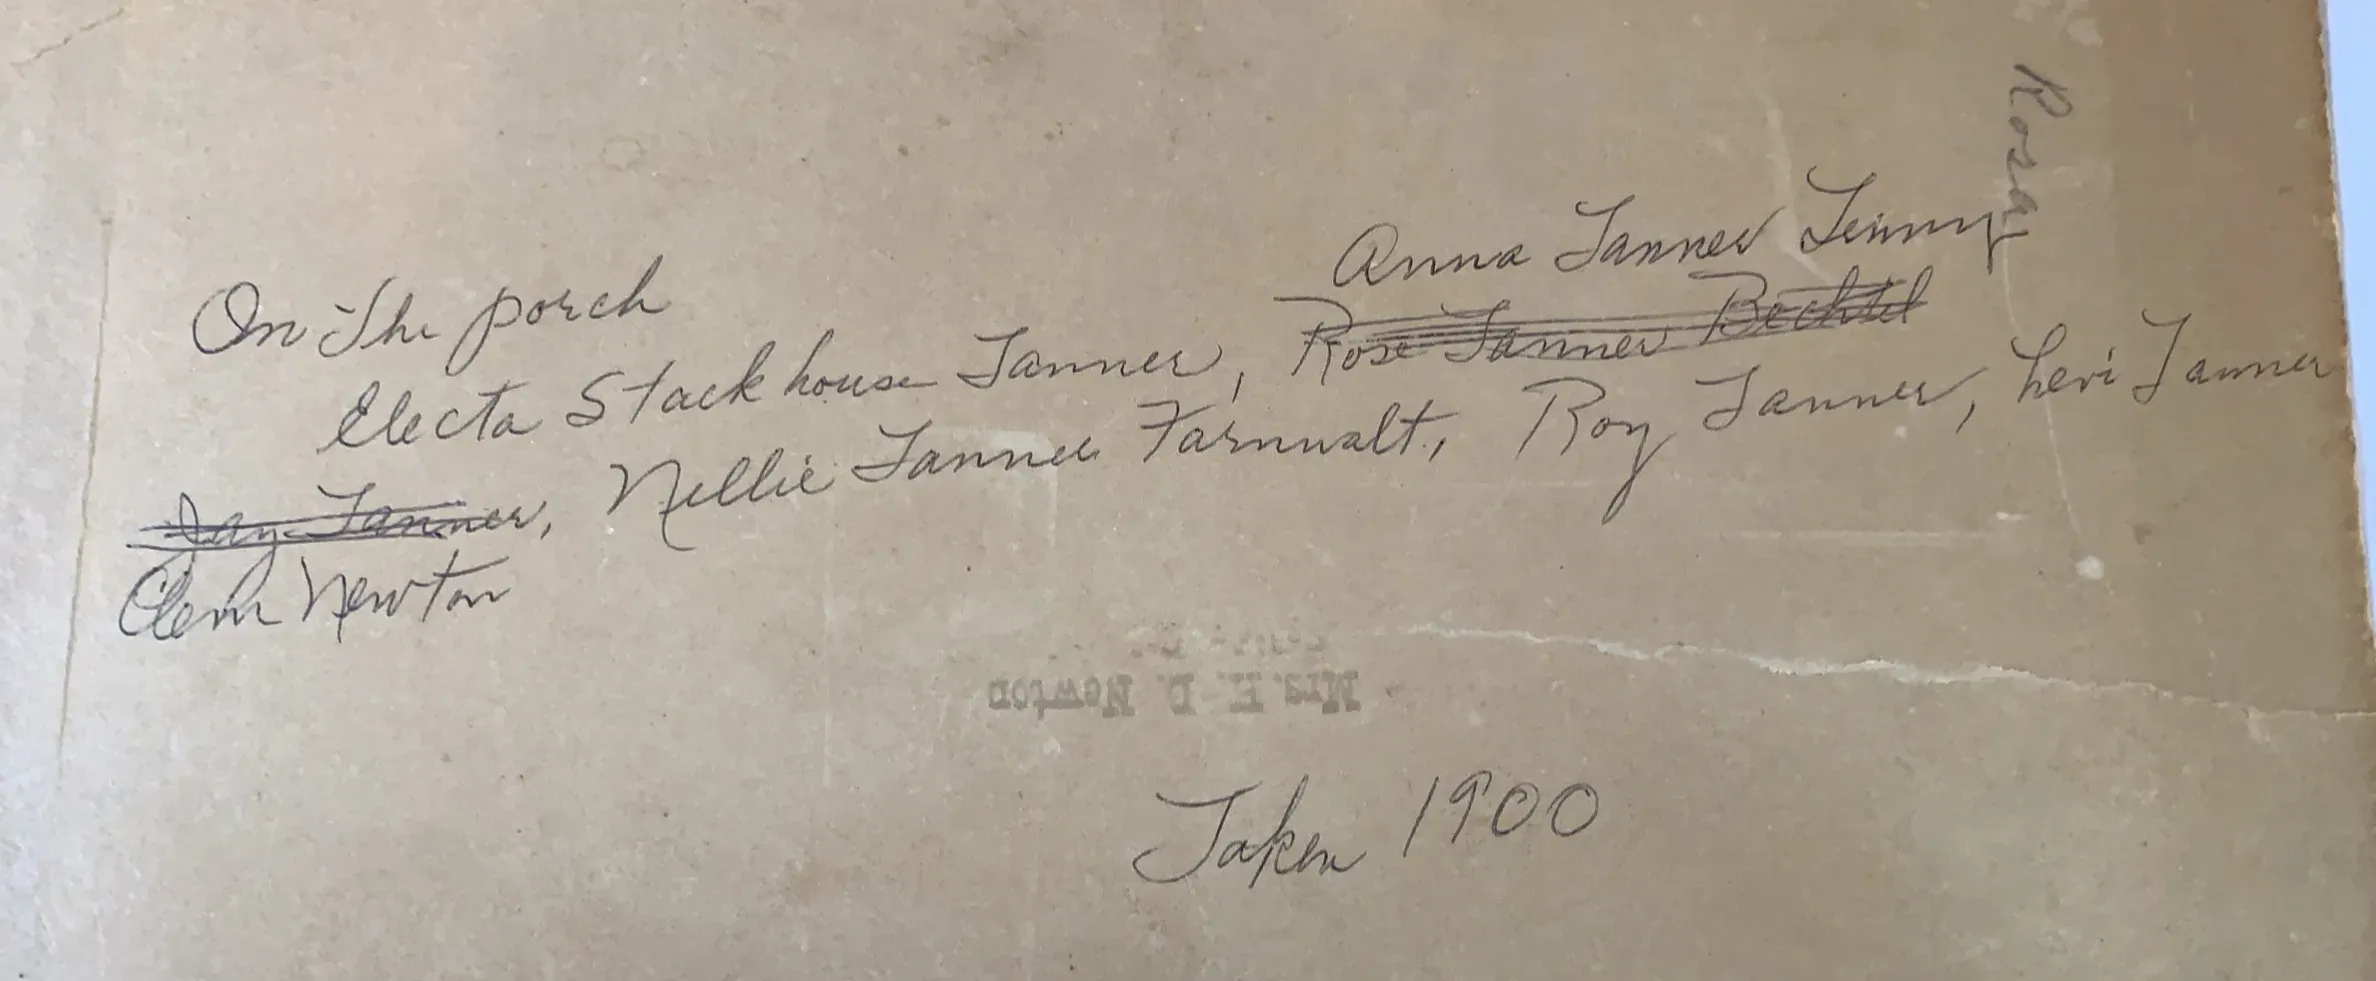 Rosa
Anna Tanner
On The porch
Electa Stackhouse Tanner, Rose Tanner Bechtel
Jay Tanner, Nellie Tanner Farnwalt, Roy Tanner, Levi Tanner
Clem Newton
Mrs. H. D. Newton
Taken 1900